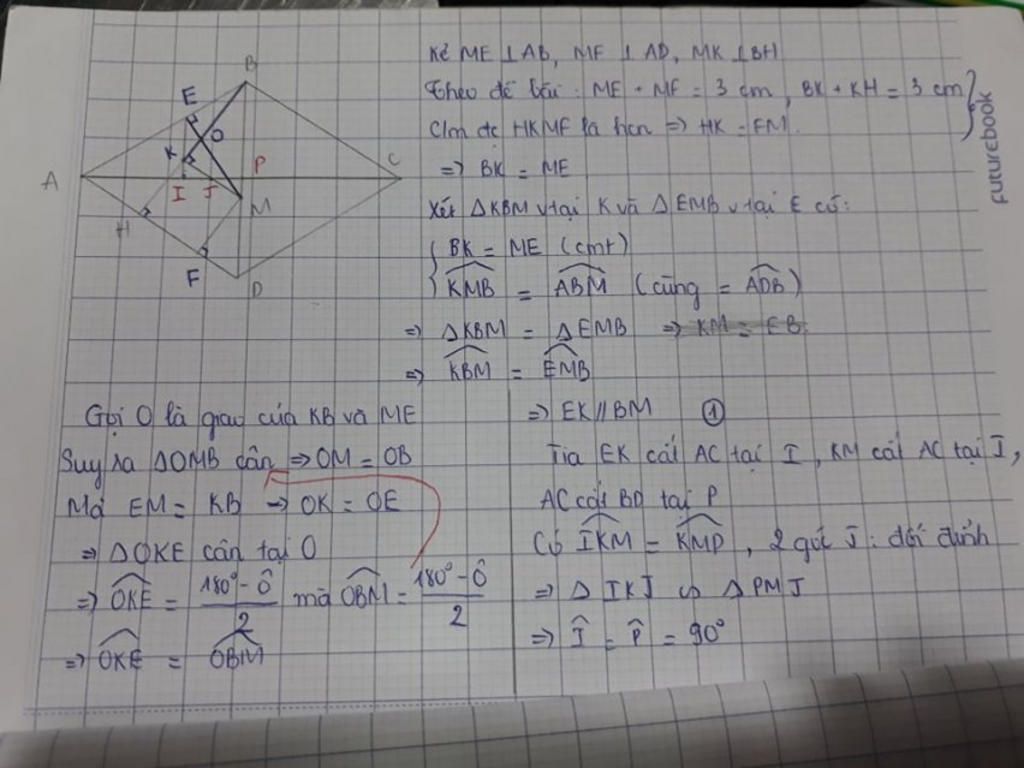 Kẻ ME ⊥ AB, MF ⊥ AD, MK ⊥ BH
Theo đề bài: ME + MF = 3 cm, BK + KH = 3 cm
Cm đc HKMF là hcn => HK = FM.
=> BK = ME
Xét ΔKBM v tại K và ΔEMB v tại E có:
BK = ME (cmt)
KMB = ABM (cùng = ADB)
=> ΔKBM = ΔEMB => KM = EB
=> KBM = EMB
Gọi O là giao của KB và ME
Suy ra ΔOMB cân => OM = OB
Mà EM = KB -> OK = OE
=> ΔOKE cân tại O
=> OKE = (180° - Ô)/2 mà OBM = (180° - Ô)/2
=> OKE = OBM
=> EK // BM ①
Tia EK cắt AC tại I, KM cắt AC tại J,
AC cắt BD tại P
Có IKM = KMP, 2 góc J: đối đỉnh
=> Δ IKJ ∽ Δ PMJ
=> Î = P̂ = 90°
B
E
O
K
P
C
A
I
J
M
H
F
D
Futurebook